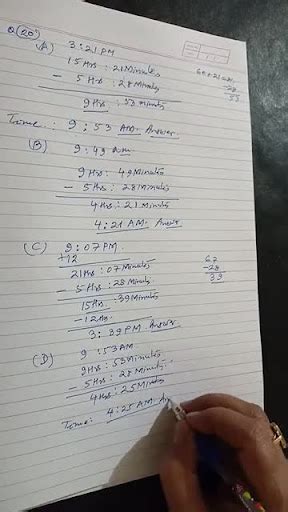 Q (20)
(A) 3:21 PM
15 Hrs : 21 Minutes
- 5 Hrs : 28 Minutes
9 Hrs : 53 Minutes
60+21
-28
53
Time : 9:53 AM. Answer
(B) 9:49 am
9 Hrs : 49 Minutes
- 5 Hrs : 28 Minutes
4 Hrs : 21 Minutes
4:21 AM. Answer
(C) 9:07 PM
+12
21 Hrs : 07 Minutes
- 5 Hrs : 28 Minutes
15 Hrs : 39 Minutes
-12 Hrs
3:39 PM Answer
67
-28
39
(D) 9:53 AM
9 Hrs : 53 Minutes
- 5 Hrs : 28 Minutes
4 Hrs : 25 Minutes
Time: 4:25 AM. An